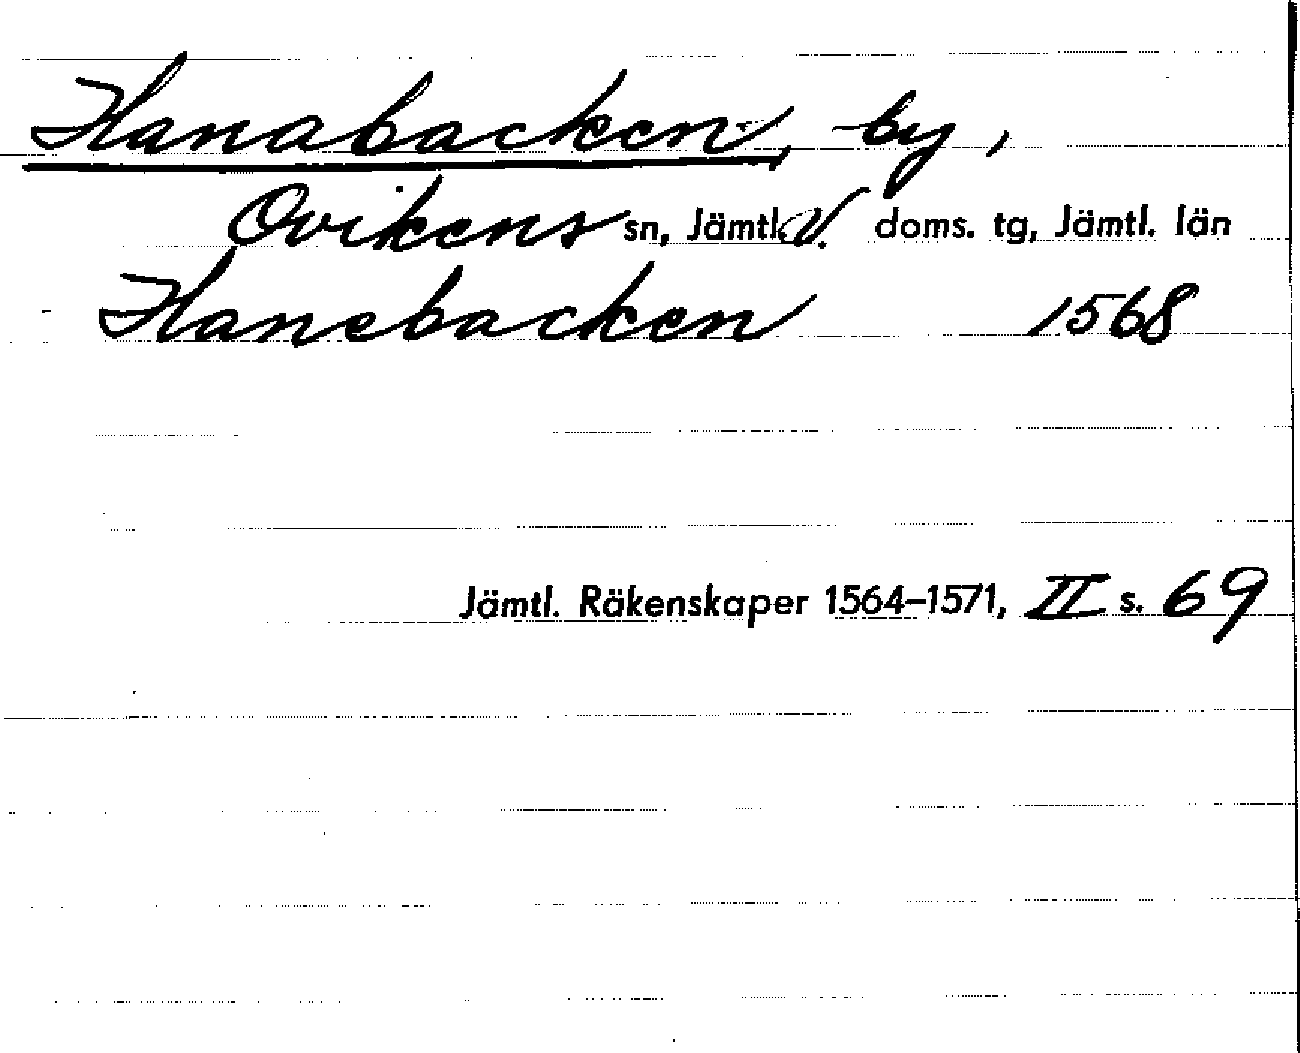 Hanabacken, by,
Ovikens sn, Jämtl. V. doms. tg, Jämtl. län
Hanebacken 1568
Jämtl. Räkenskaper 1564-1571, II s. 69